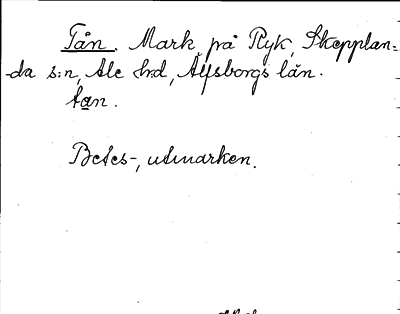 Tån. Mark på Ryk, Skepplan-
-da s:n, Ale hd, Älfsborgs län.
tan.
Betes-, utmarken.